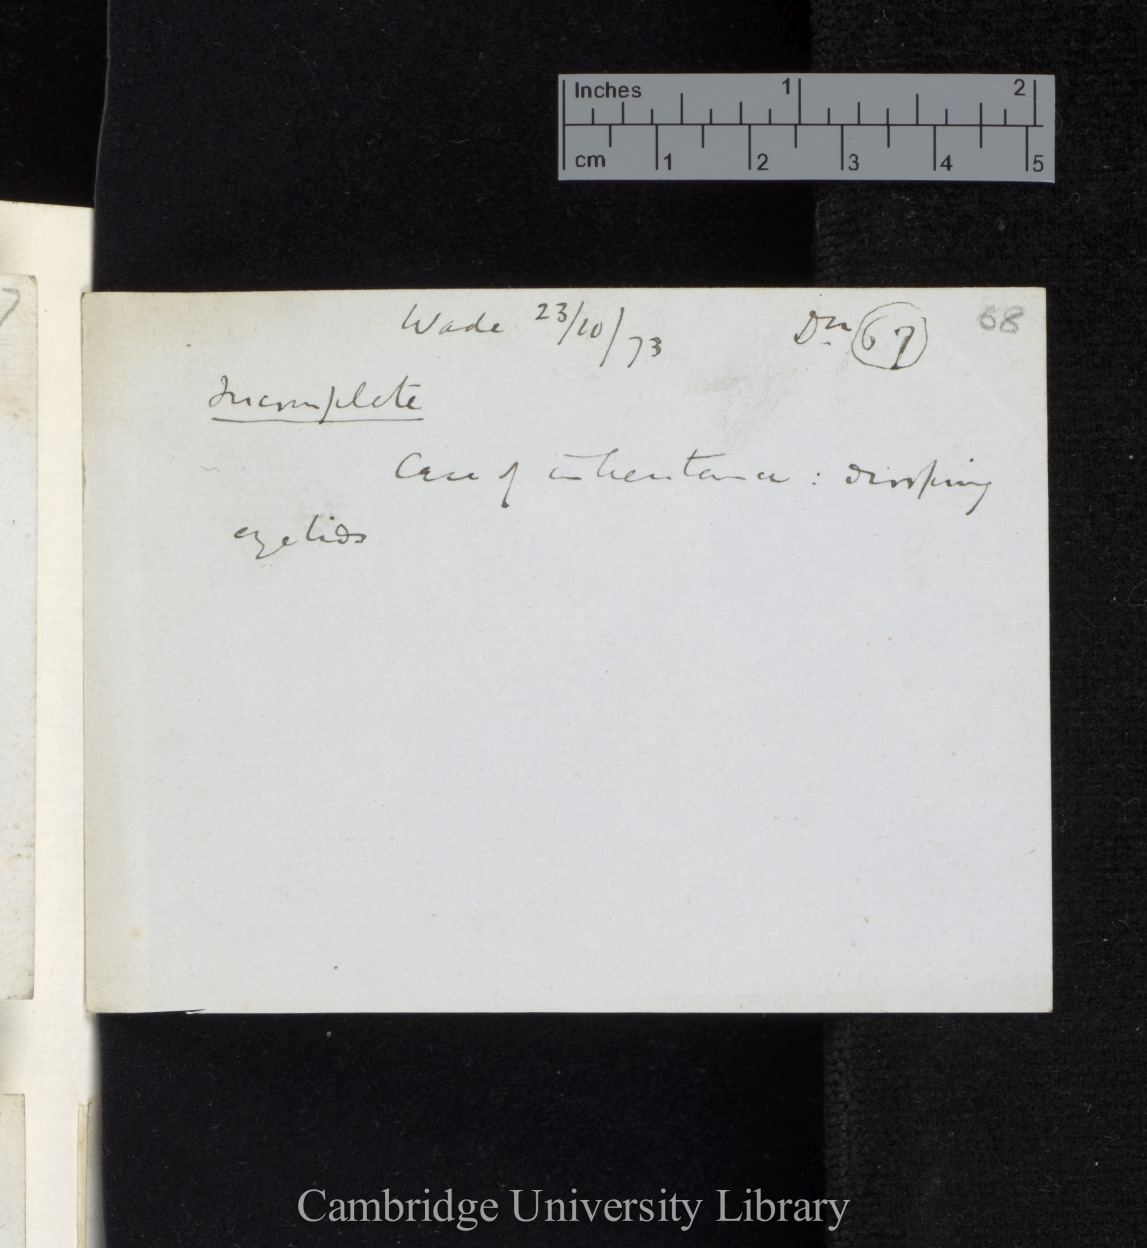 Inches 1 2
cm 1 2 3 4 5
7
Wade 23/10/73 Dn 67 68
Incomplete
Case of inheritance : drooping
eyelids
Cambridge University Library